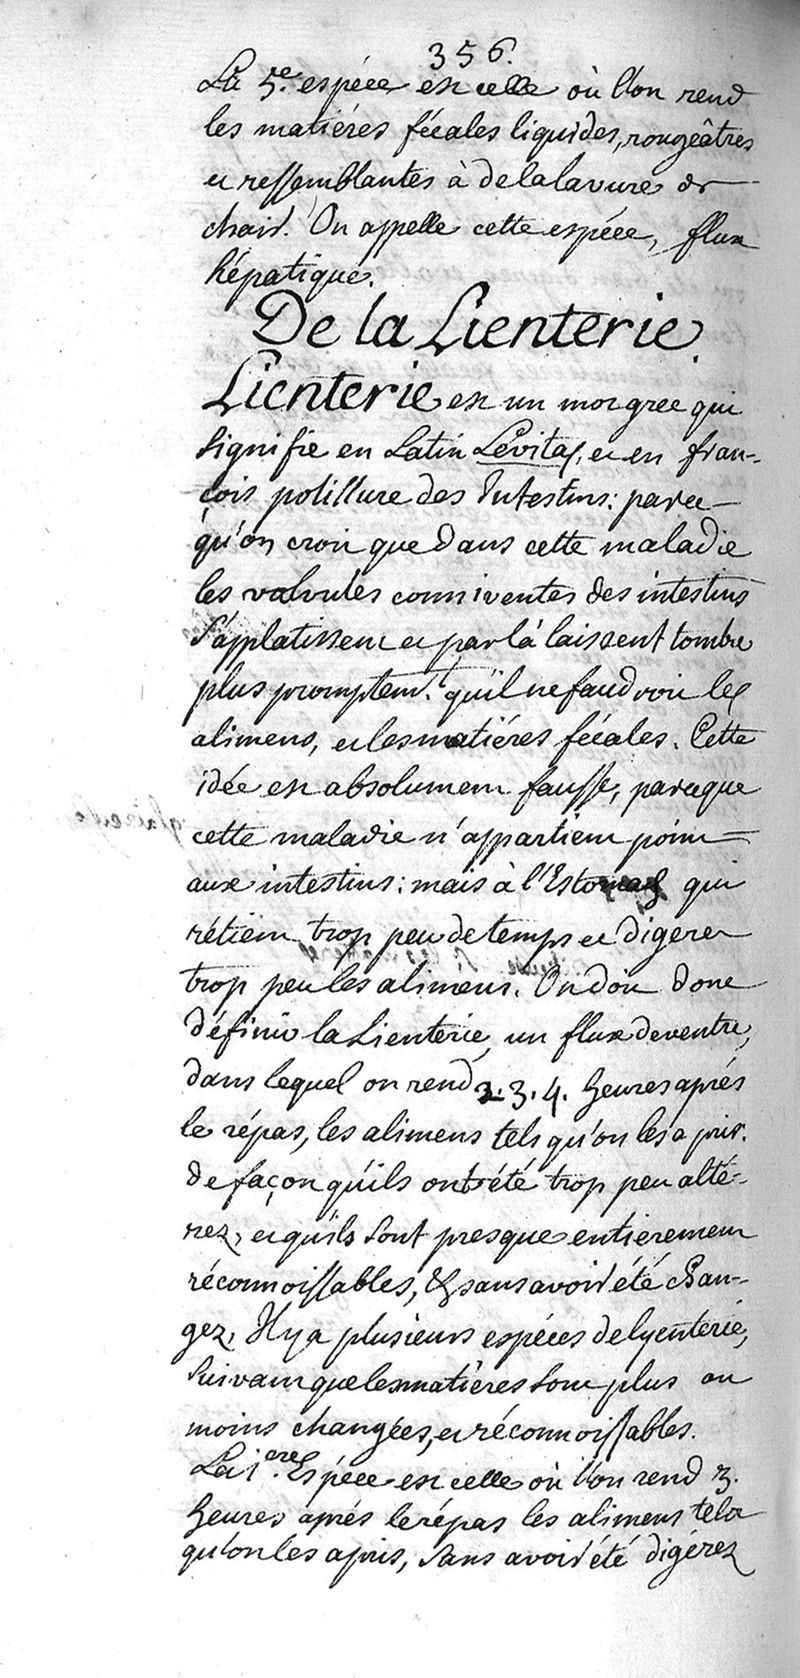 356.
La 5.e espéce est celle où l'on rend
les matiéres fécales liquides, rougeâtres
et ressemblantes à de la lavure de
chair. On appelle cette espéce, flux
hépatique.
De la Lienterie.
Lienterie est un mot grec qui
signifie en Latin Levitas, et en fran-
çois polissure des Intestins: parce
qu'on croit que dans cette maladie
les valvules conniventes des intestins
s'applatissent et par là laissent tomber
plus promptem.t qu'il ne faudroit les
alimens, et les matiéres fécales. Cette
idée est absolument fausse, parceque
cette maladie n'appartient point
aux intestins: mais à l'Estomac qui
rétient trop peu de temps et digere
trop peu les alimens. On doit donc
définir la Lienterie, un flux de ventre,
dans lequel on rend 2. 3. 4. heures aprés
le répas, les alimens tels qu'on les a pris.
de façon qu'ils ont été trop peu alté-
rez, et qu'ils sont presque entierement
réconnoissables, & sans avoir été chan-
gez. Il y a plusieurs espéces de lyenterie,
suivant que les matières sont plus ou
moins changées, et réconnoissables.
La 1.ere Espéce est celle où l'on rend 3.
heures aprés le répas les alimens tels
qu'on les a pris, sans avoir été digérez